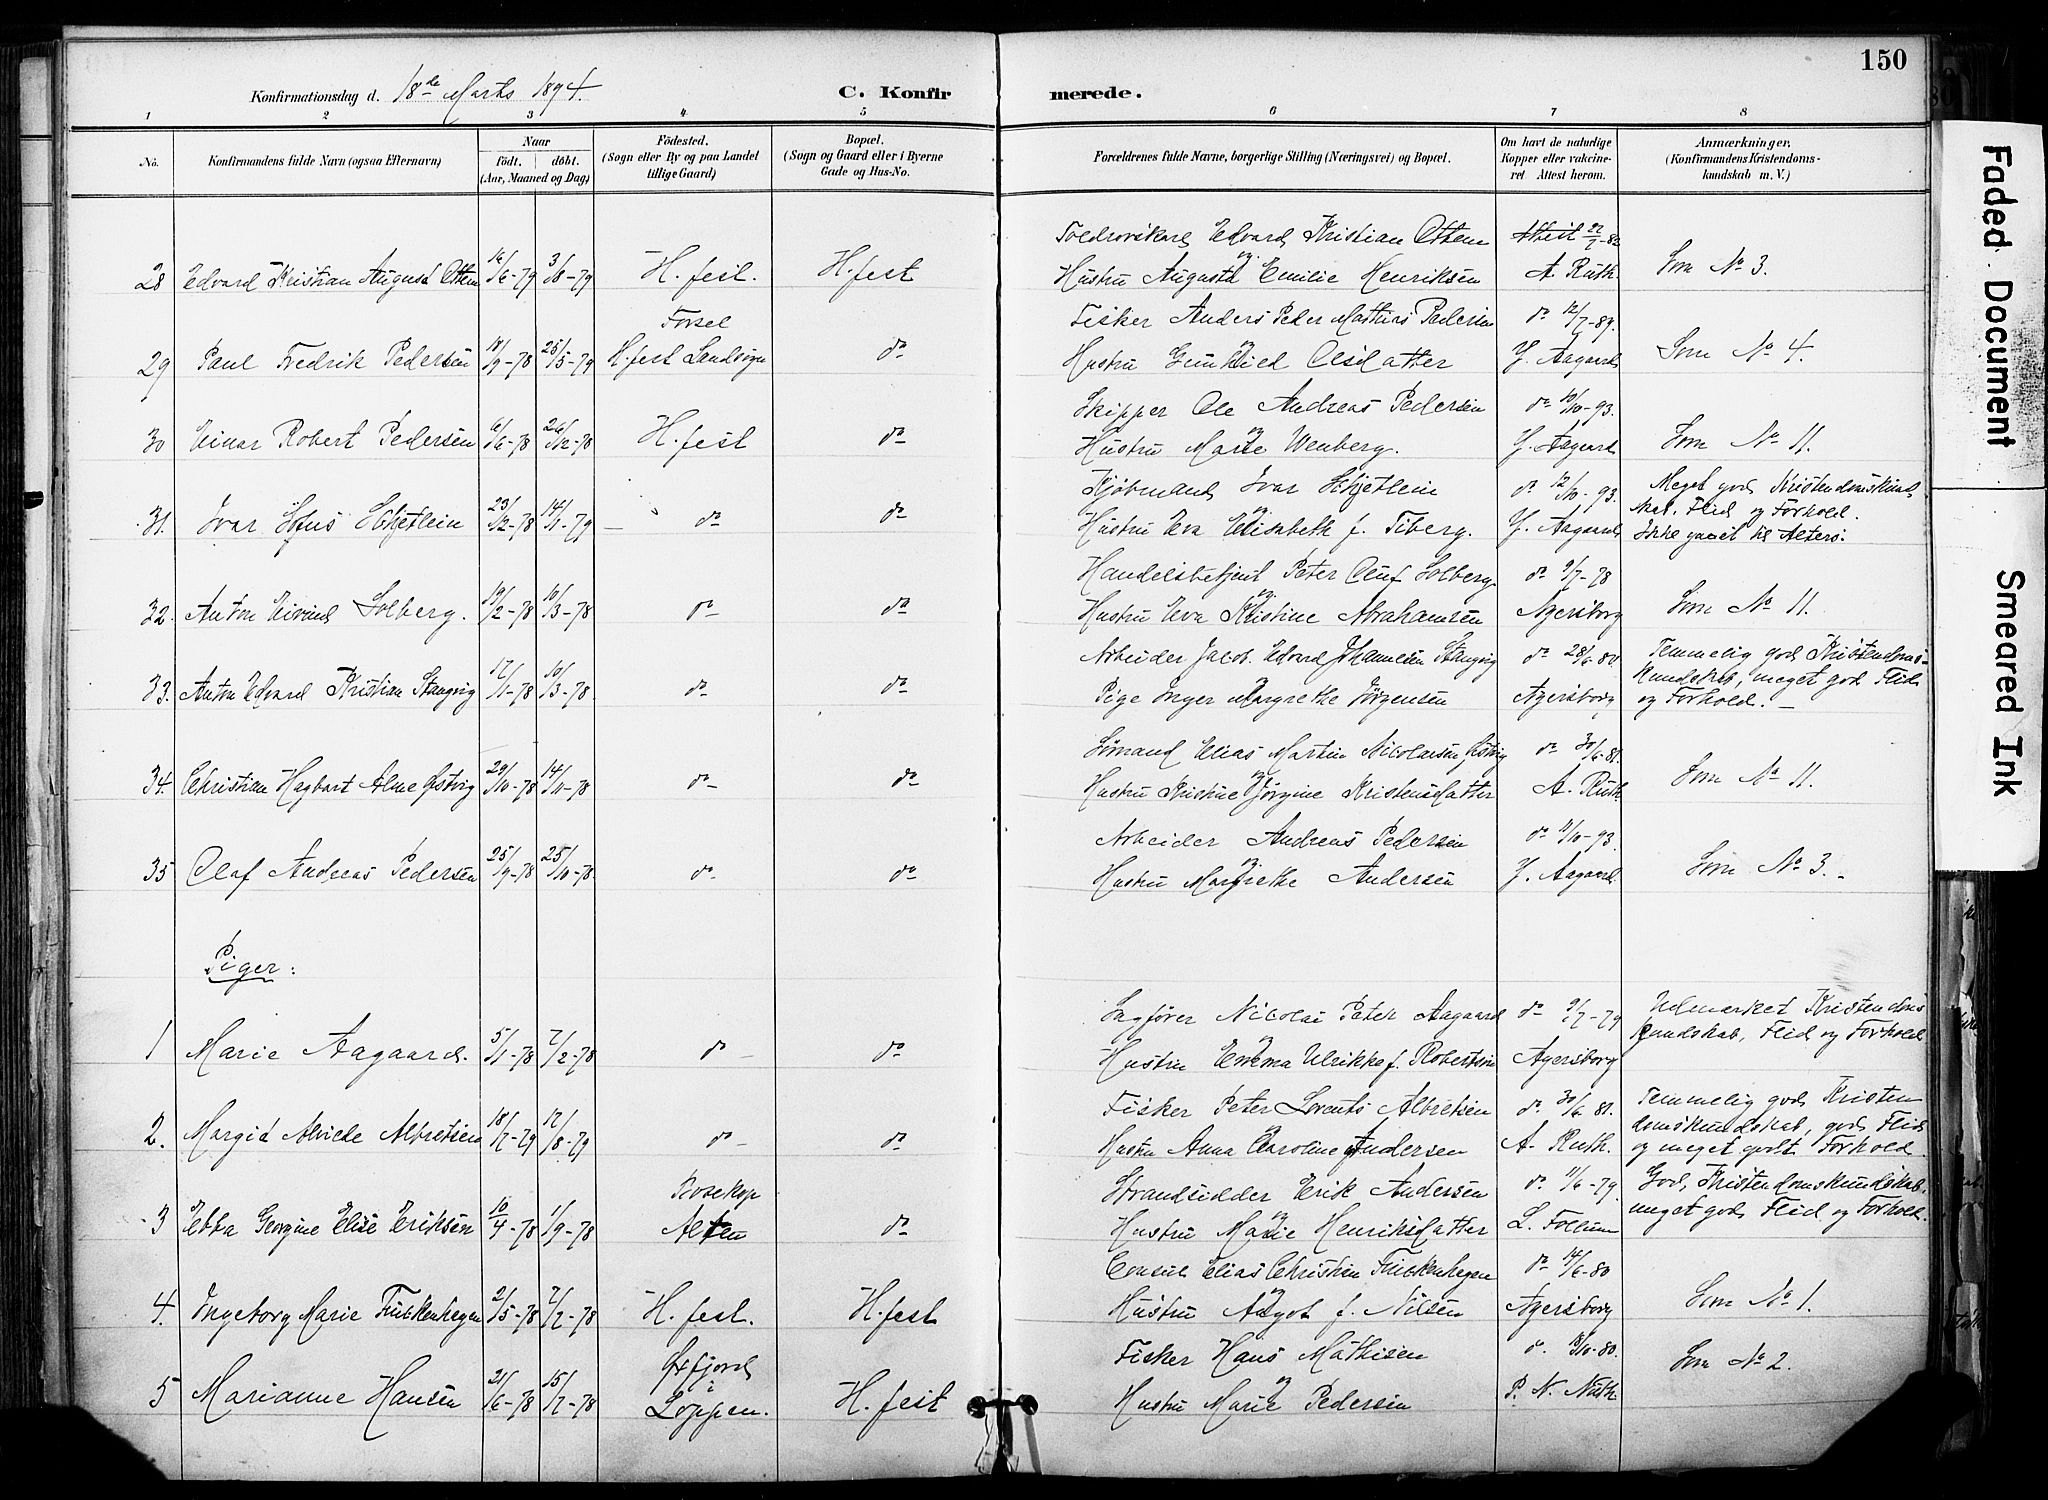 150
Konfirmationsdag d. 18de Marts 1894.
C. Konfirmerede.
1 2 3 4 5 6 7 8
No. Konfirmandens fulde Navn (ogsaa Efternavn) Naar födt. döbt. (Aar, Maaned og Dag) Födested. (Sogn eller By og paa Landet tillige Gaard) Bopæl. (Sogn og Gaard eller i Byerne Gade og Hus-No. Forældrenes fulde Navne, borgerlige Stilling (Næringsvei) og Bopæl. Om havt de naturlige Kopper eller vakcineret Attest herom. Anmærkninger. (Konfirmandens Kristendomskundskab m. V.)
Edvard Kristian Ottem Attest 22/7-82
28 Edvard Kristian August Ottem 16/6-79 3/8-79 H.fest. H.fest Hustru Augusta Emilie Henriksen A. Ruth Som No 3.
Forsøl Fisker Anders Peder Mathias Pedersen do 12/7-89.
29 Paul Fredrik Pedersen 18/9-78 25/5-79 H.fest Landsogn do Hustru Gunhild Olsdatter Y. Aagaard Som No 4.
Skipper Ole Andreas Pedersen do 10/10-93.
30 Einar Robert Pedersen 6/6-78 26/12-78 H.fest do Hustru Marie Wenberg. Y. Aagaard Som No 11.
Kjøbmand Ivar Schjetlein do 12/10-93. Meget god Kristendomskundskab. Flid og Forhold.
31. Ivar Schjetlein 23/12-78 14/1-79 do do Hustru Eva Elisabeth f. Fiberg. Y. Aagaard Ikke gaaet til Alters.
Handelsbetjent Peter Oluf Solberg do 9/7-78
32. Anton Eivind Solberg. 19/2-78 10/3-78 do do Hustru Eva Kristine Abrahamsen Agersborg Som No 11.
Arbeider Jacob Edvard Johannesen Stangvig do 28/6-80. Temmelig god Kristendoms-
33. Anton Edvard Kristian Stangvig 17/1-78 10/3-78 do do Pige Inger Margrethe Jørgensen Agersborg Kundskab, meget god Flid og Forhold. —
Sømand Elias Martin Nicolaisen Østvig do 30/6-81.
34. Christian Hagbart Alme Østvig 29/10-78 14/11-78 do do Hustru Kristine Jørgine Kristensdatter A. Ruth Som No 11.
Arbeider Andreas Pedersen do 11/10-93.
35 Olaf Andreas Pedersen 25/9-78 25/10-78 do do Hustru Margrethe Andersen Y. Aagaard. Som No 3.
Piger:
Sagfører Nicolai Peter Aagaard do 9/7-79 Udmærket Kristendoms
1 Marie Aagaard. 5/1-78 7/2-78 do do Hustru Emma Ulrikke f. Robertson Agersborg kundskab, Flid og Forhold
Fisker Peter Lorents Albretsen do 30/6 81. Temmelig god Kristen
2. Margit Alvide Albretsen 18/7-79 17/8-79 do do Hustru Anna Caroline Andersen A. Ruth. domskundskab, god Flid og meget godt Forhold.
Bosekop Strandsidder Erik Andersen do 11/6-79. God Kristendomskundskab.
3 Ebba Georgine Elise Eriksen 10/4-78 1/9-78 Alten do Hustru Marie Henriksdatter L. Follum meget god Flid og Forhold.
Consul Elias Christian Finckenhagen do 14/6-80
4. Ingeborg Marie Finckenhagen 2/5-78 7/7-78 H.fest. H.fest Hustru Aagot f. Nilsen Agersborg Som No 1.
Øxfjord Fisker Hans Mathisen do 18/10-80.
5 Marianne Hansen 21/6-78 15/7-78 i Loppen. H.fest Hustru Marie Pedersen P. N. Som No 2.
Faded Document
Smeared Ink